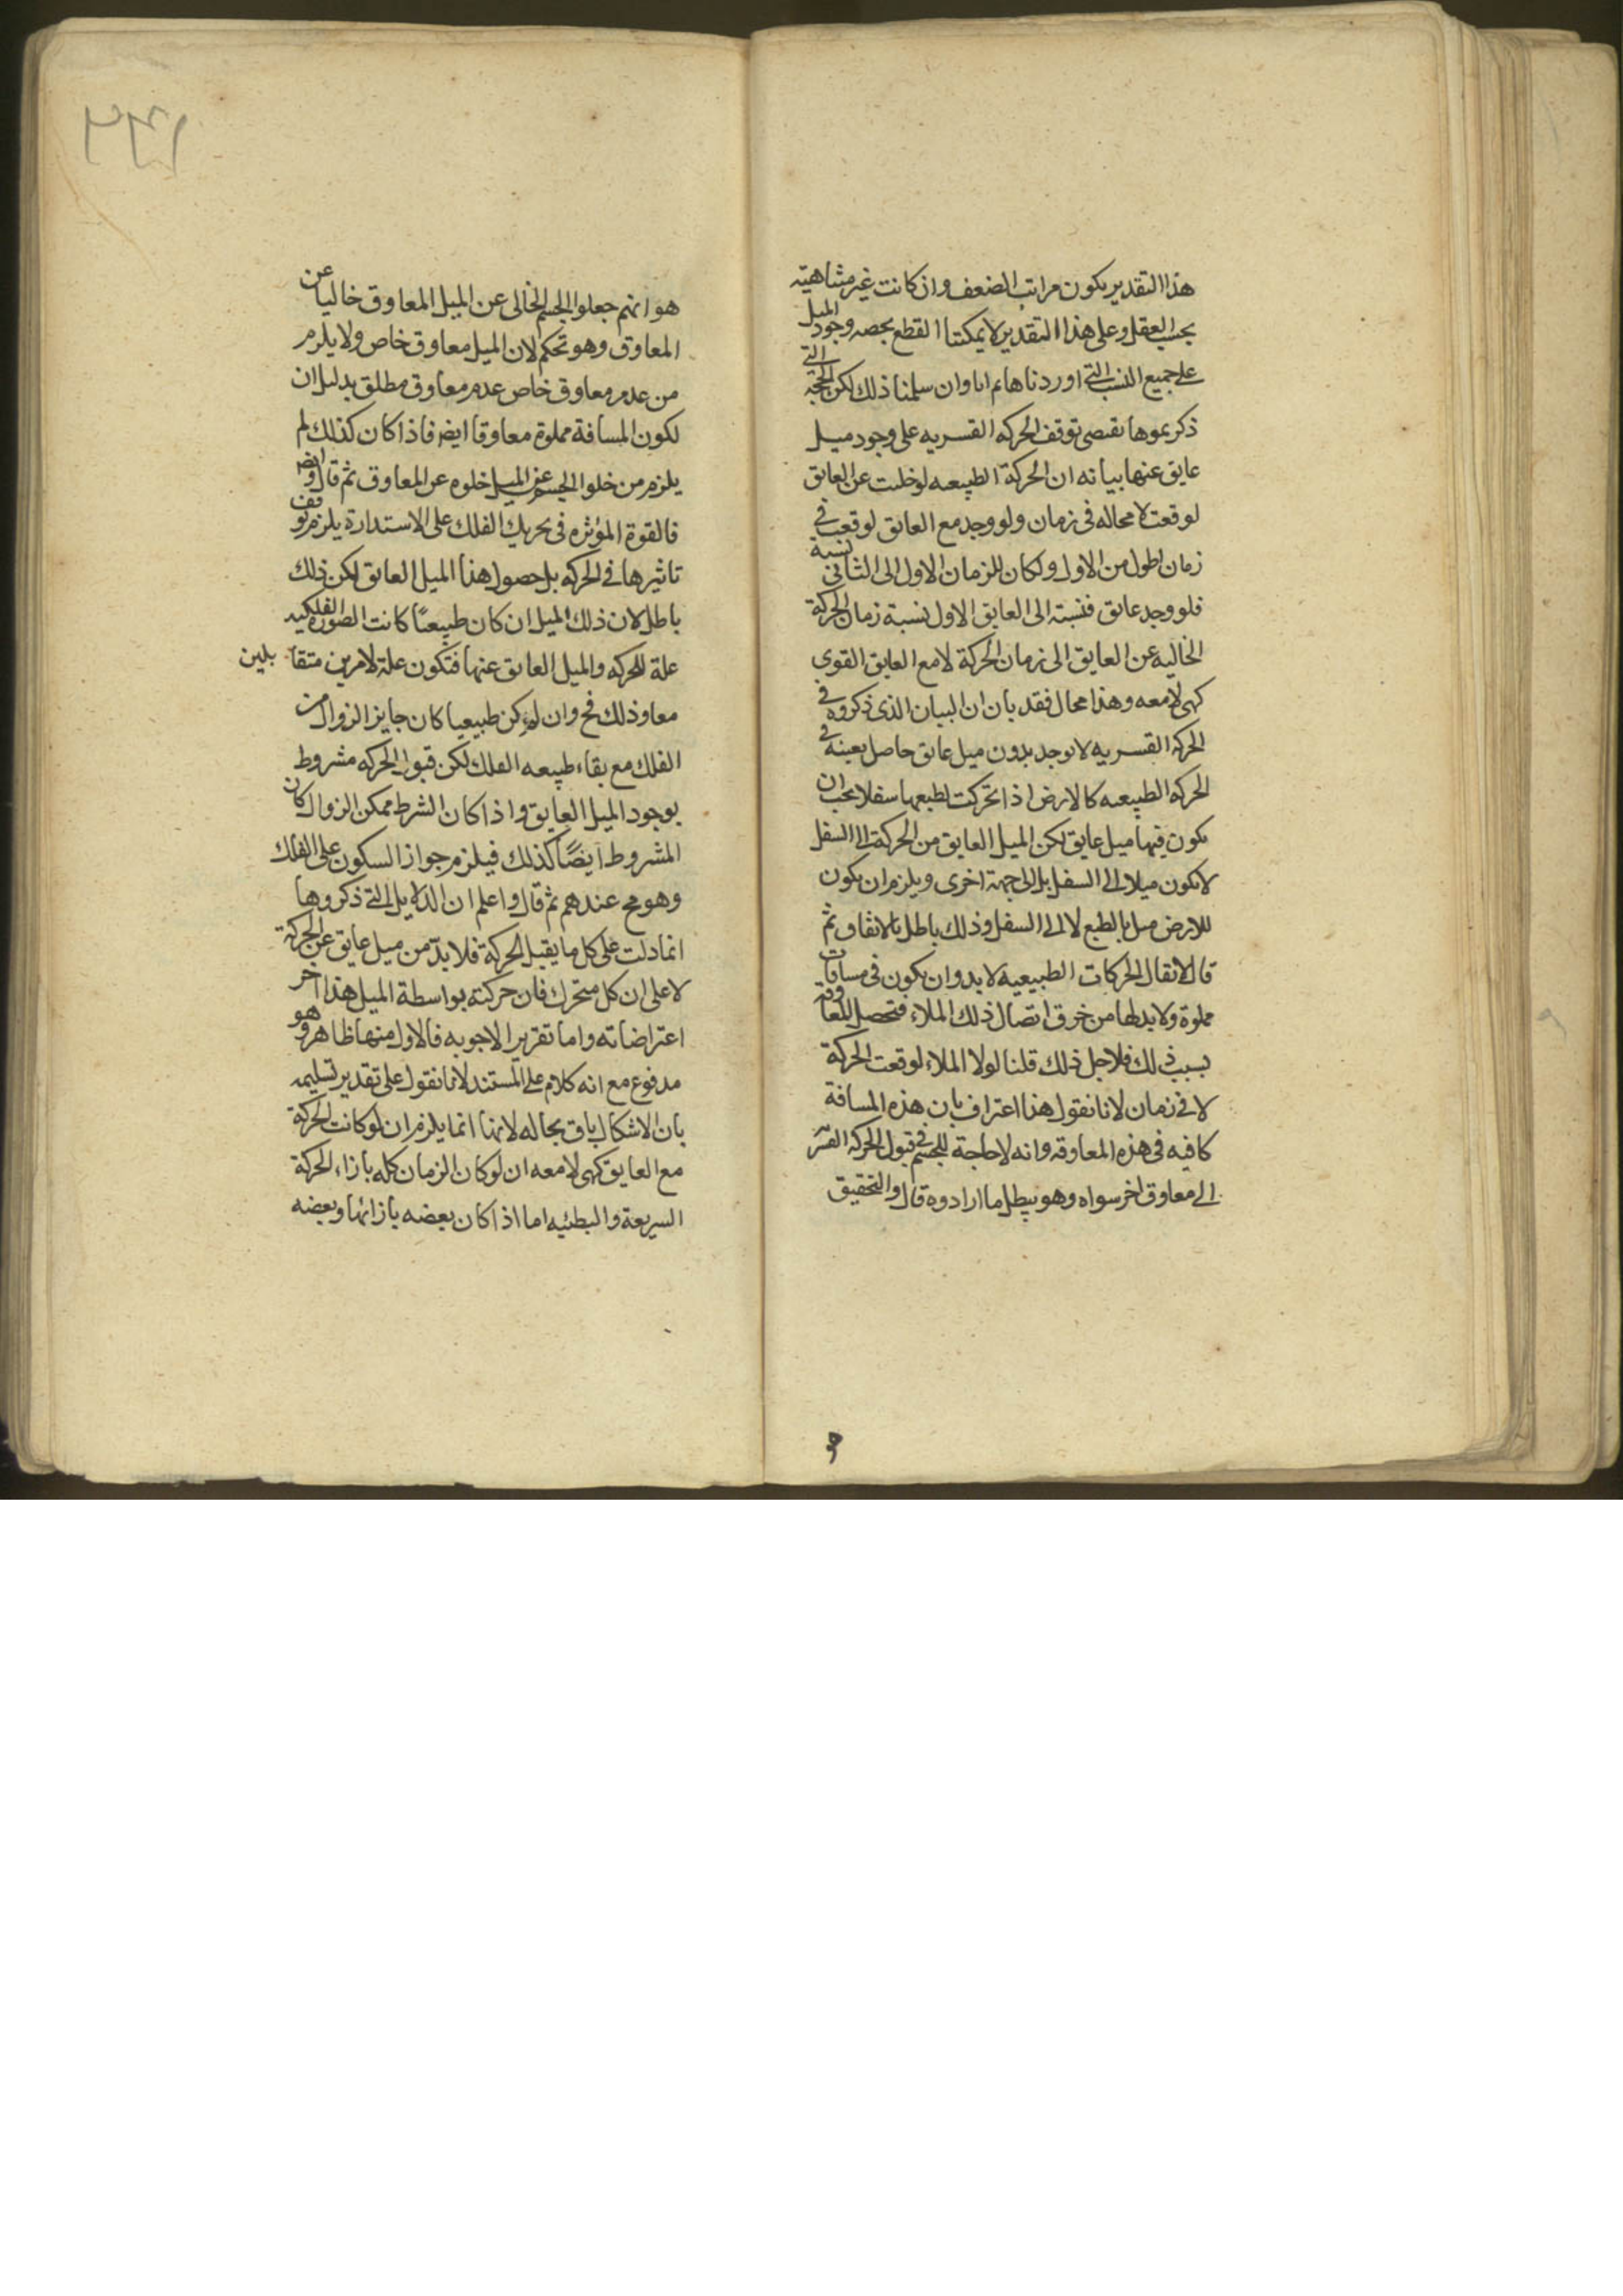 هذا التقدير يكون مراتب الضعف وان كانت غير متناهيته
بحسب العقل وعلى هذا التقدير لا يمكننا القطع بحصه وجود الميل
على جميع النسب التى اوردناها ثم انا وان سلمنا ذلك لكن الحجة التى
ذكريموها تقتضى توقف الحركه القسريه على وجود ميل
عايق عنها بيانه ان الحركة الطبيعه لو خلت عن العايق
لوقعت لا محاله فى زمان ولو وجد مع العايق لوقعت فى
زمان اطول من الاول ولكان للزمان الاول الى الثانى نسبة
فلو وجد عايق فنسبته الى العايق الاول نسبة زمان الحركة
الخاليه عن العايق الى زمان الحركة لا مع العايق القوى
كهى لا معه وهذا محال فقد بان ان البيان الذى ذكروه فى
الحركة القسريه لا توجد بدون ميل عايق حاصل بعينه فى
الحركه الطبيعه كالارض اذا تحركت لطبعها سفلا يجب ان
يكون فيها ميل عايق لكن الميل العايق من الحركة الى السفل
لا يكون ميلا الى السفل بل الى جهة اخرى ويلزم ان يكون
للارض ميل بالطبع لا الى السفل وذلك باطل بالاتفاق ثم
قال لا يقال الحركات الطبيعيه لا بد وان يكون فى مسافات
مملوة ولا بد لها من خرق اتصال ذلك الملاء فتحصل المعاوقة
بسبب ذلك فلاجل ذلك قلنا لولا الملاء لوقعت الحركة
لا فى زمان لانا نقول هذا اعتراف بان هذه المسافة
كافيه فى هذه المعاوقه وانه لا حاجة للجسم فى قبول الحركه القسر
الى معاوق اخر سواه وهو يبطل ما ارادوه قال والتحقيق
هو
١٣٦
هو انهم جعلوا الجسم الخالى عن الميل المعاوق خاليا عن
المعاوق وهو تحكم لان الميل معاوق خاص ولا يلزم
من عدم معاوق خاص عدم معاوق مطلق بدليل ان
لكون المسافة مملوة معاوقا ايضا فاذا كان كذلك لم
يلزم من خلو الجسم عن الميل خلوه عن المعاوق ثم قال وايضا
فالقوة المؤثره فى تحريك الفلك على الاستدارة يلزم توقف
تاثيرها فى الحركه بل حصول هذا الميل العايق لكن ذلك
باطل لان ذلك الميل ان كان طبيعيًا كانت الصورة الفلكيه
علة للحركه والميل العايق عنها فتكون علة لامرين متقا بلين
معا وذلك مح وان لم يكن طبيعيا كان جايز الزوال من
الفلك مع بقاء طبيعه الفلك لكن قبول الحركه مشروط
بوجود الميل العايق واذا كان الشرط ممكن الزوال كان
المشروط ايضًا كذلك فيلزم جواز السكون على الفلك
وهو مح عندهم ثم قال واعلم ان الدلايل التى ذكروها
انما دلت على كل ما يقبل الحركة فلا بدّ من ميل عايق عن الحركة
لا على ان كل متحرك فان حركته بواسطة الميل هذا اخر
اعتراضاته واما تقرير الاجوبه فالاول منها ظاهر وهو
مدفوع مع انه كلام على المستند لانا نقول على تقدير تسليمه
بان الاشكال باق بحاله لانها انما يلزم ان لو كانت الحركة
مع العايق كهى لا معه ان لو كان الزمان كله بازاء الحركة
السريعة والبطئيه اما اذا كان بعضه بازائها وبعضه